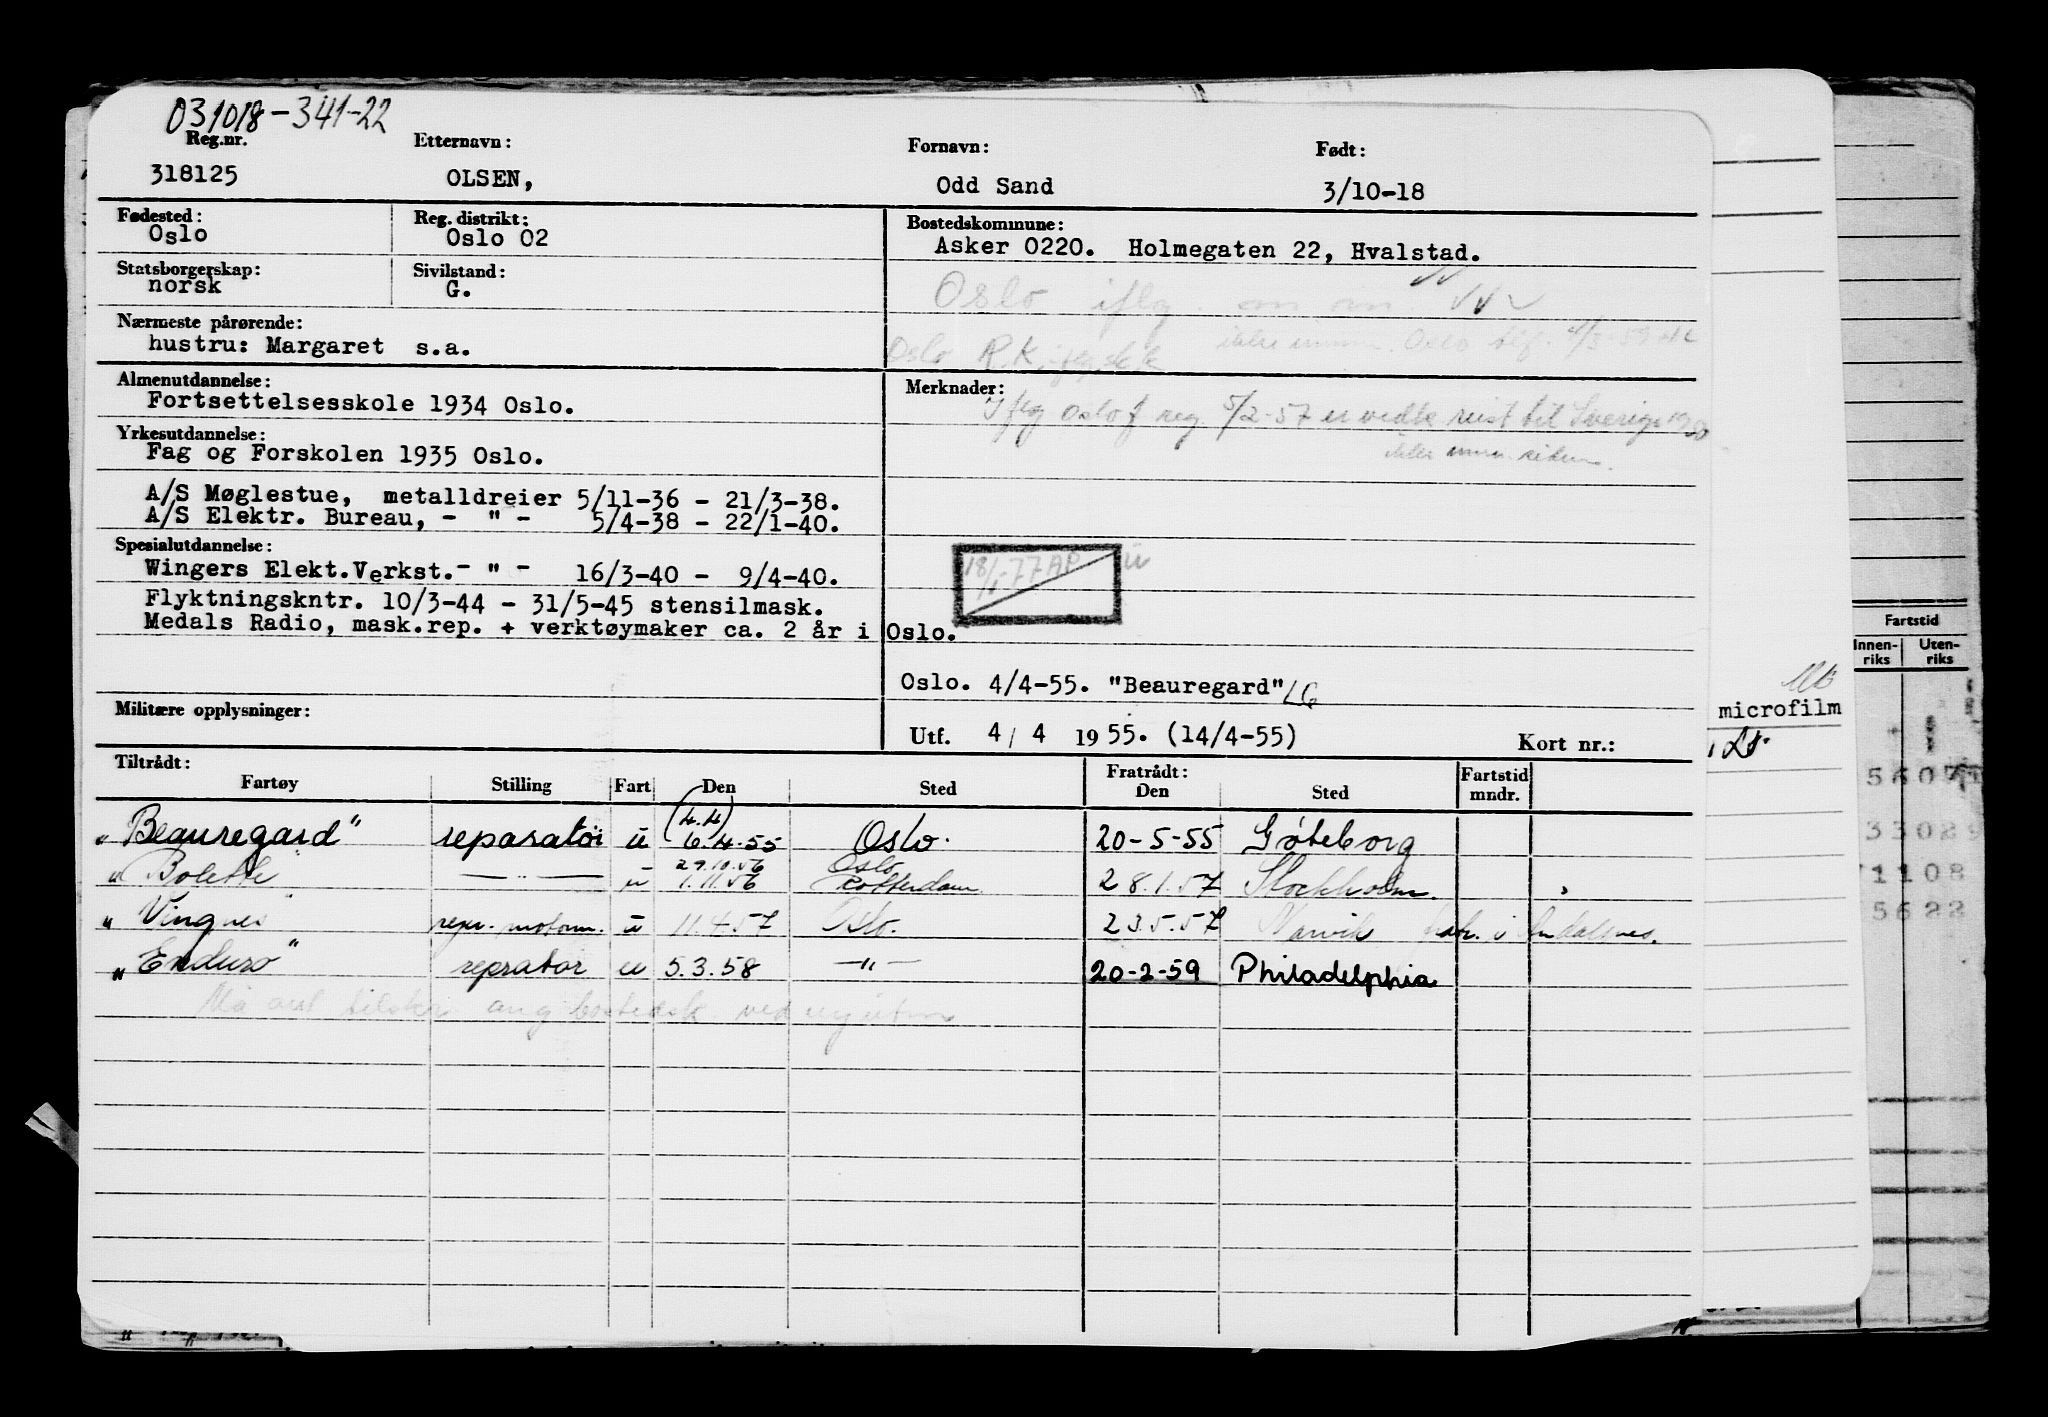 031018-341-22
Reg.nr. Etternavn: Fornavn: Født:
318125 OLSEN, Odd Sand 3/10-18
Fødested: Reg. distrikt: Bostedskommune:
Oslo Oslo 02 Asker 0220. Holmegaten 22, Hvalstad.
Statsborgerskap: Sivilstand:
norsk G.
Oslo iflg
Nærmeste pårørende:
hustru: Margaret s.a.
Oslo R.K.
Almenutdannelse: Merknader:
Fortsettelsesskole 1934 Oslo.
Iflg Oslo f reg 5/2-57 er vedk reist til Sverige
Yrkesutdannelse:
Fag og Forskolen 1935 Oslo.
A/S Møglestue, metalldreier 5/11-36 - 21/3-38.
A/S Elektr. Bureau, - " - 5/4-38 - 22/1-40.
Spesialutdannelse:
Wingers Elekt.Verkst.- " - 16/3-40 - 9/4-40.
18/1-77 AP
Flyktningskntr. 10/3-44 - 31/5-45 stensilmask.
Medals Radio, mask.rep. + verktøymaker ca. 2 år i Oslo.
Oslo. 4/4-55. "Beauregard" LG
Militære opplysninger:
Utf. 4/4 1955. (14/4-55) Kort nr.:
Tiltrådt: Fratrådt: Fartstid
Fartøy Stilling Fart Den Sted Den Sted mndr.
(4.4)
"Beauregard" reparatør u 6.4.55 Oslo. 20-5-55 Gøteborg
29.10.56 Oslo
"Bolette" — " — u 1.11.56 Rotterdam 28.1.57 Stockholm.
"Vingnes" repr. motorm. u 11.4.57 Oslo. 23.5.57 Narvik i Åndalsnes.
"Enduro" reprator u 5.3.58 — " — 20-2-59 Philadelphia
Fartstid
Innen-riks Uten-riks
microfilm